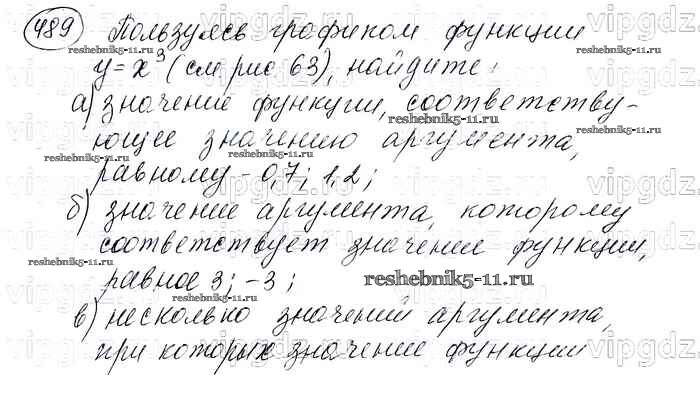 489 Пользуясь графиком функции
y = x³ (см. рис 63), найдите:
а) значение функции, соответству-
ющее значению аргумента,
равному -0,7; 1,2;
б) значение аргумента, которому
соответствует значение функции,
равное 3; -3;
в) несколько значений аргумента,
при которых значение функции
reshebnik5-11.ru
vipgdz.com